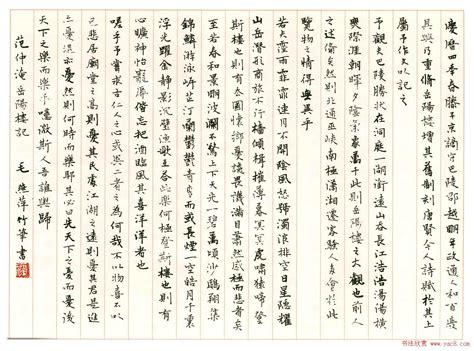 慶曆四年春滕子京謫守巴陵郡越明年政通人和百廢
具興乃重脩岳陽樓增其舊制刻唐賢今人詩賦於其上
屬予作文以記之
予觀夫巴陵勝狀在洞庭一湖銜遠山吞長江浩浩湯湯橫
無際涯朝暉夕陰氣象萬千此則岳陽樓之大觀也前人
之述備矣然則北通巫峽南極瀟湘遷客騷人多會於此
覽物之情得無異乎
若夫霪雨霏霏連月不開陰風怒號濁浪排空日星隱耀
山岳潛形商旅不行檣傾楫摧薄暮冥冥虎嘯猿啼登
斯樓也則有去國懷鄉憂讒畏譏滿目蕭然感極而悲者矣
至若春和景明波瀾不驚上下天光一碧萬頃沙鷗翔集
錦鱗游泳岸芷汀蘭鬱鬱青青或長煙一空皓月千里
浮光躍金靜影沉璧漁歌互答此樂何極登斯樓也則有
心曠神怡寵辱偕忘把酒臨風其喜洋洋者也
嗟乎予嘗求古仁人之心或異二者之為何哉不以物喜不以
己悲居廟堂之高則憂其民處江湖之遠則憂其君是進
亦憂退亦憂然則何時而樂耶其必曰先天下之憂而憂後
天下之樂而樂乎噫微斯人吾誰與歸
范仲淹岳陽樓記 毛 萍竹筆書
书法欣赏 www.yac8.com